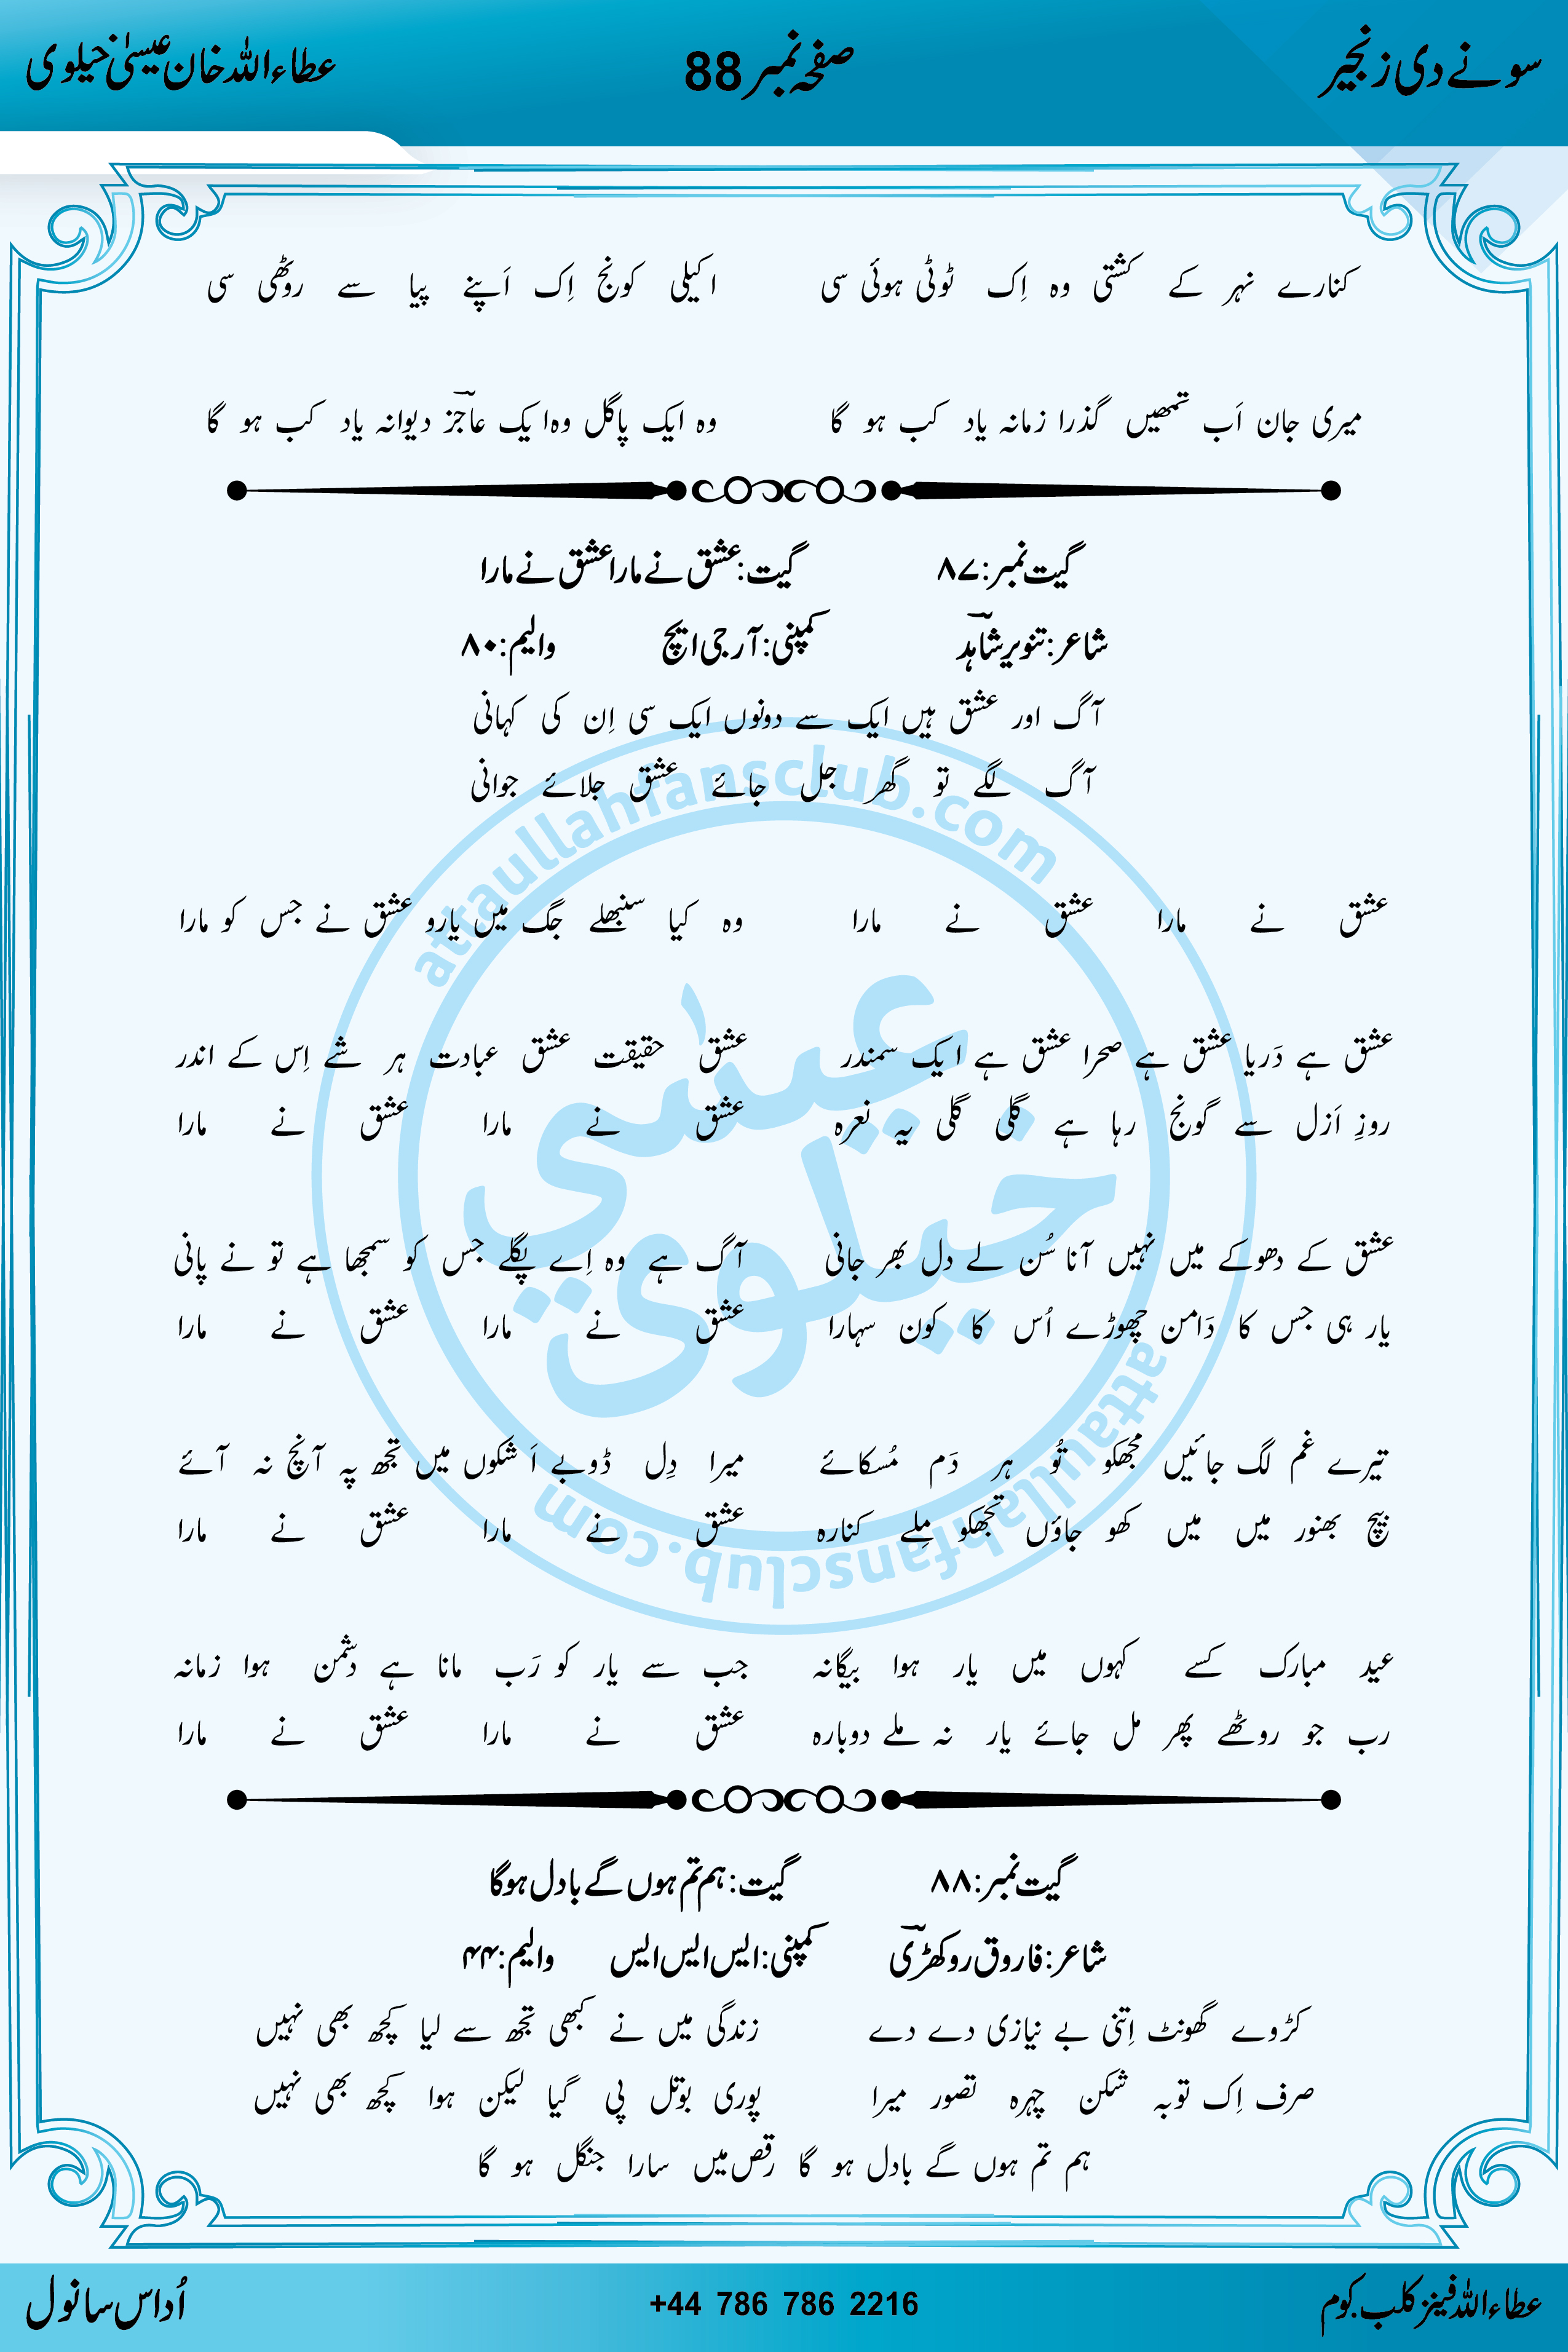 سونے دی زنجیر صفحہ نمبر 88 عطاءاللہ خان عیسیٰ خیلوی
کنارے نہر کے کشتی وہ اِک ٹوٹی ہوئی سی اکیلی کونج اِک اَپنے پیا سے روٹھی سی
میری جان اَب تمھیں گذرا زمانہ یاد کب ہو گا وہ ایک پاگل وہ ایک عاجؔز دیوانہ یاد کب ہو گا
گیت نمبر: ۸۷ گیت: عشق نے مارا عشق نے مارا
شاعر: تنویر شاہؔد کمپنی: آر جی ایچ والیم: ۸۰
آگ اور عشق ہیں ایک سے دونوں ایک سی اِن کی کہانی
آگ لگے تو گھر جل جائے عشق جلائے جوانی
عشق نے مارا عشق نے مارا وہ کیا سنبھلے جگ میں یارو عشق نے جس کو مارا
عشق ہے دَریا عشق ہے صحرا عشق ہے ایک سمندر عشق حقیقت عشق عبادت ہر شے اِس کے اندر
روزِ اَزل سے گونج رہا ہے گلی گلی یہ نعرہ عشق نے مارا عشق نے مارا
عشق کے دھوکے میں نہیں آنا سُن لے دل بھر جانی آگ ہے وہ اِے پگلے جس کو سمجھا ہے تو نے پانی
یار ہی جس کا دَامن چھوڑے اُس کا کون سہارا عشق نے مارا عشق نے مارا
تیرے غم لگ جائیں مجھکو تُو ہر دَم مُسکائے میرا دِل ڈوبے اَشکوں میں تجھ پہ آنچ نہ آئے
بیچ بھنور میں میں کھو جاؤں تجھکو مِلے کنارہ عشق نے مارا عشق نے مارا
عید مبارک کسے کہوں میں یار ہوا بیگانہ جب سے یار کو رَب مانا ہے دشمن ہوا زمانہ
رب جو روٹھے پھر مل جائے یار نہ ملے دوبارہ عشق نے مارا عشق نے مارا
گیت نمبر: ۸۸ گیت: ہم تم ہوں گے بادل ہوگا
شاعر: فاروق روکھڑیؔ کمپنی: ایس ایس ایس والیم: ۴۴
کڑوے گھونٹ اِتنی بے نیازی دے دے زندگی میں نے کبھی تجھ سے لیا کچھ بھی نہیں
صرف اِک توبہ شکن چہرہ تصور میرا پوری بوتل پی گیا لیکن ہوا کچھ بھی نہیں
ہم تم ہوں گے بادل ہو گا رقص میں سارا جنگل ہو گا
attaullahfansclub.com
عیسیٰ
خیلوی
attaullahfansclub.com
عطاءاللہ فینز کلب.کوم +44 786 786 2216 اُداس سانول